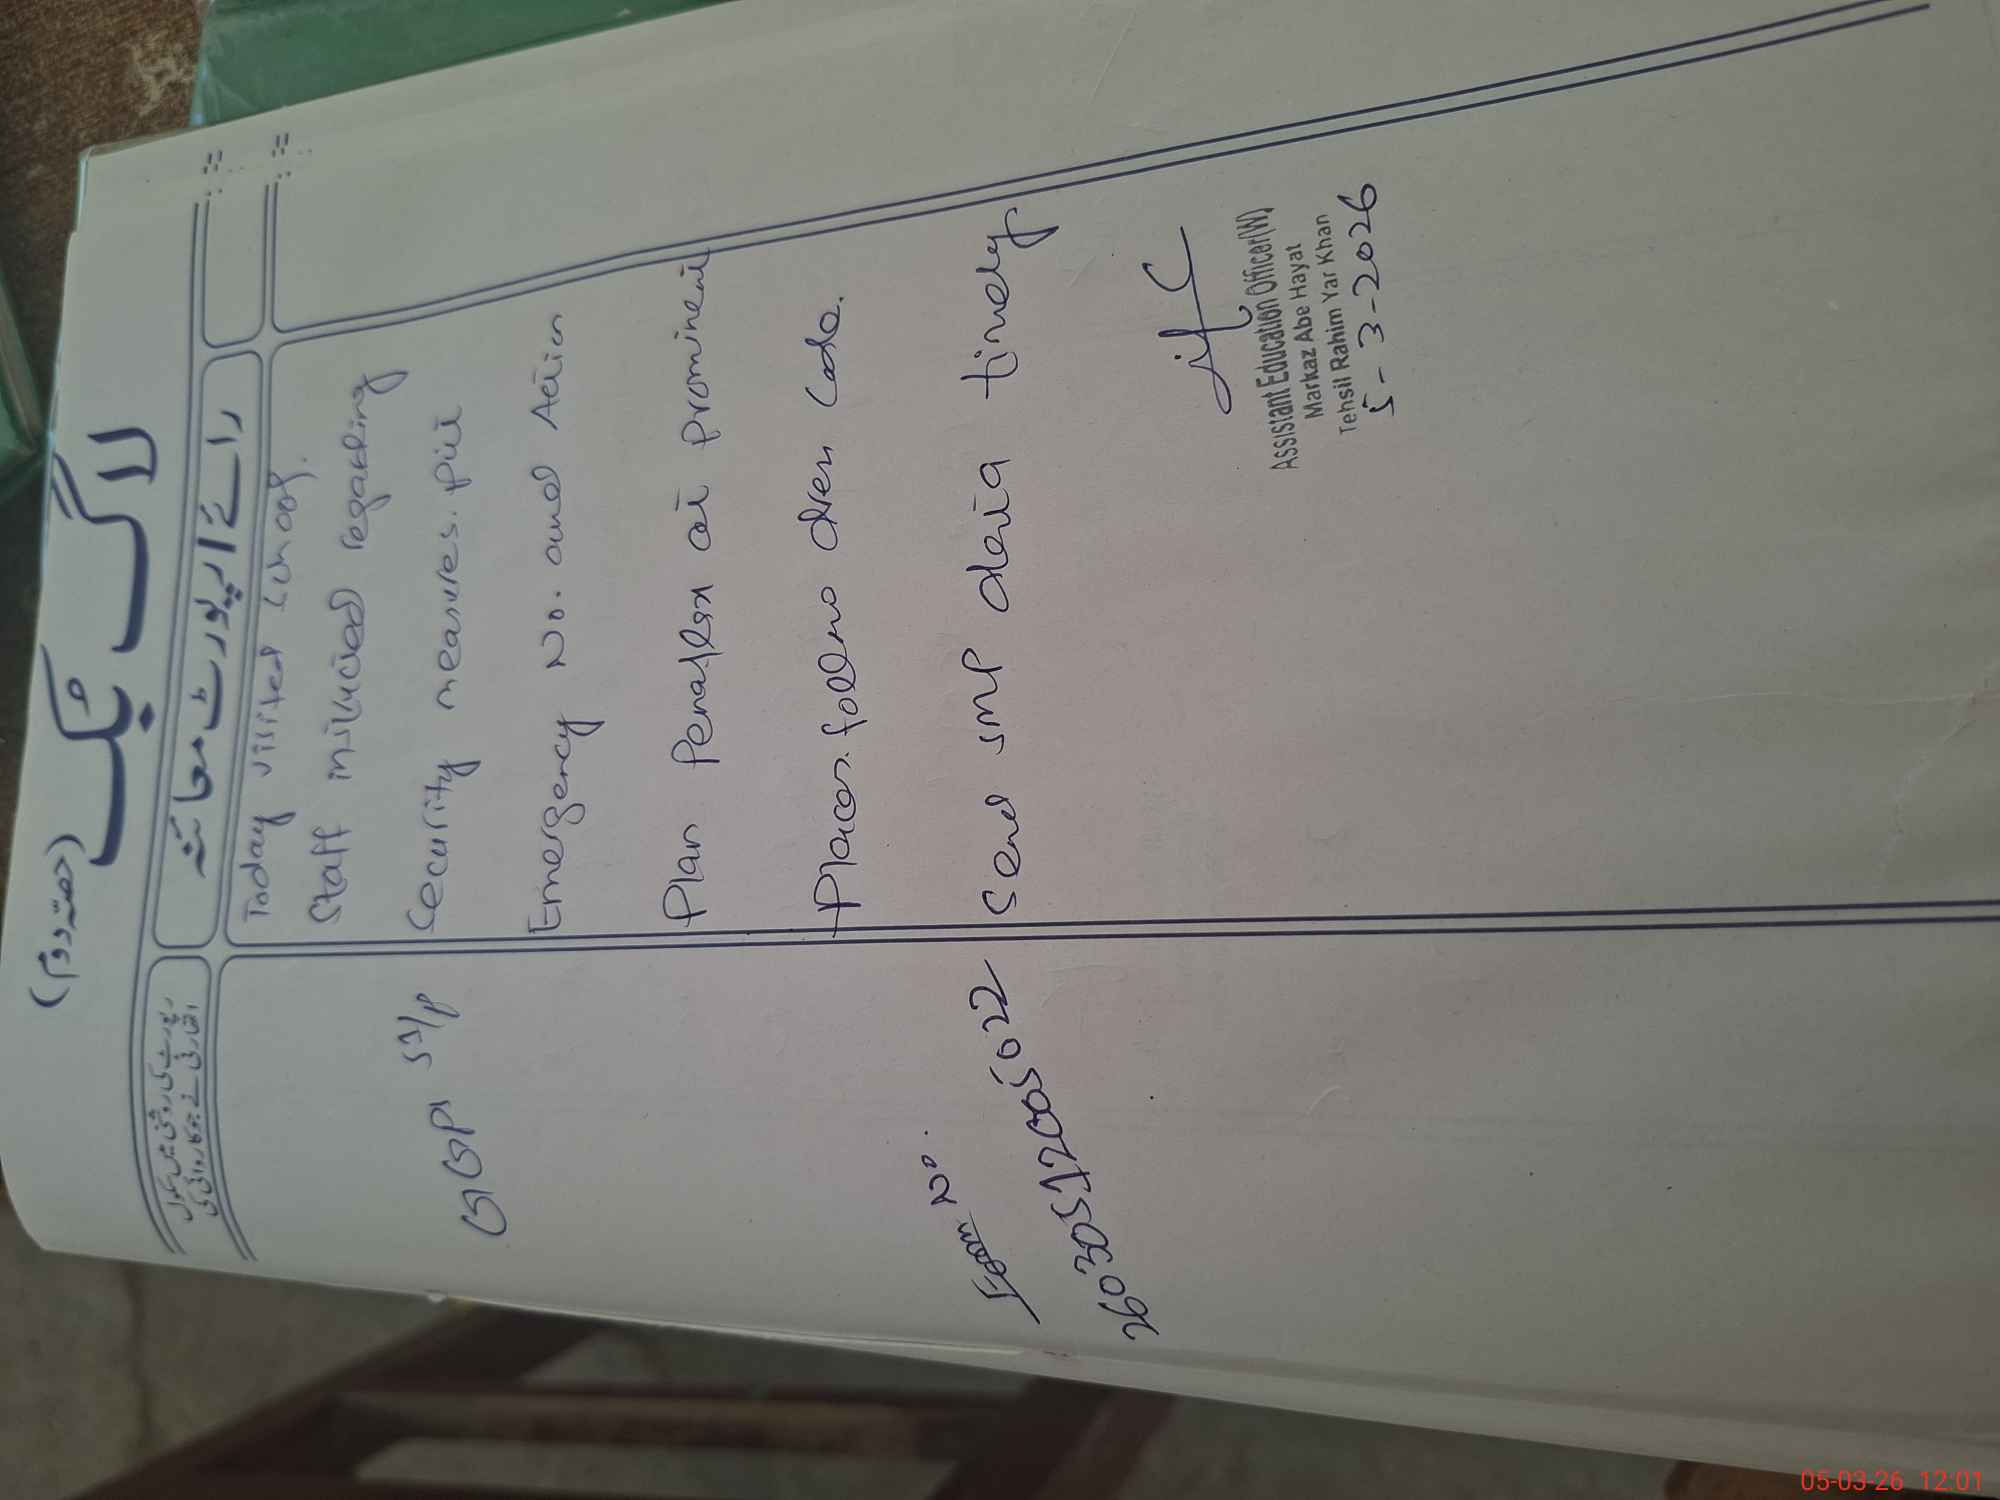 لاگ بک (حصہ دوم)
رائے / رپورٹ معائنہ
رپورٹ کی روشنی میں سکول
اتھارٹی نے جو کاروائی کی
Today visited school.
Staff instructed regarding
GGPS
Security measures. put
Emergency No. and Action
Plan Penaflex at prominent
Places. follow dress code.
Exam No.
Send SMP data timely
26030512005022
Assistant Education Officer(W)
Markaz Abe Hayat
Tehsil Rahim Yar Khan
5-3-2026
05-03-26 12:01